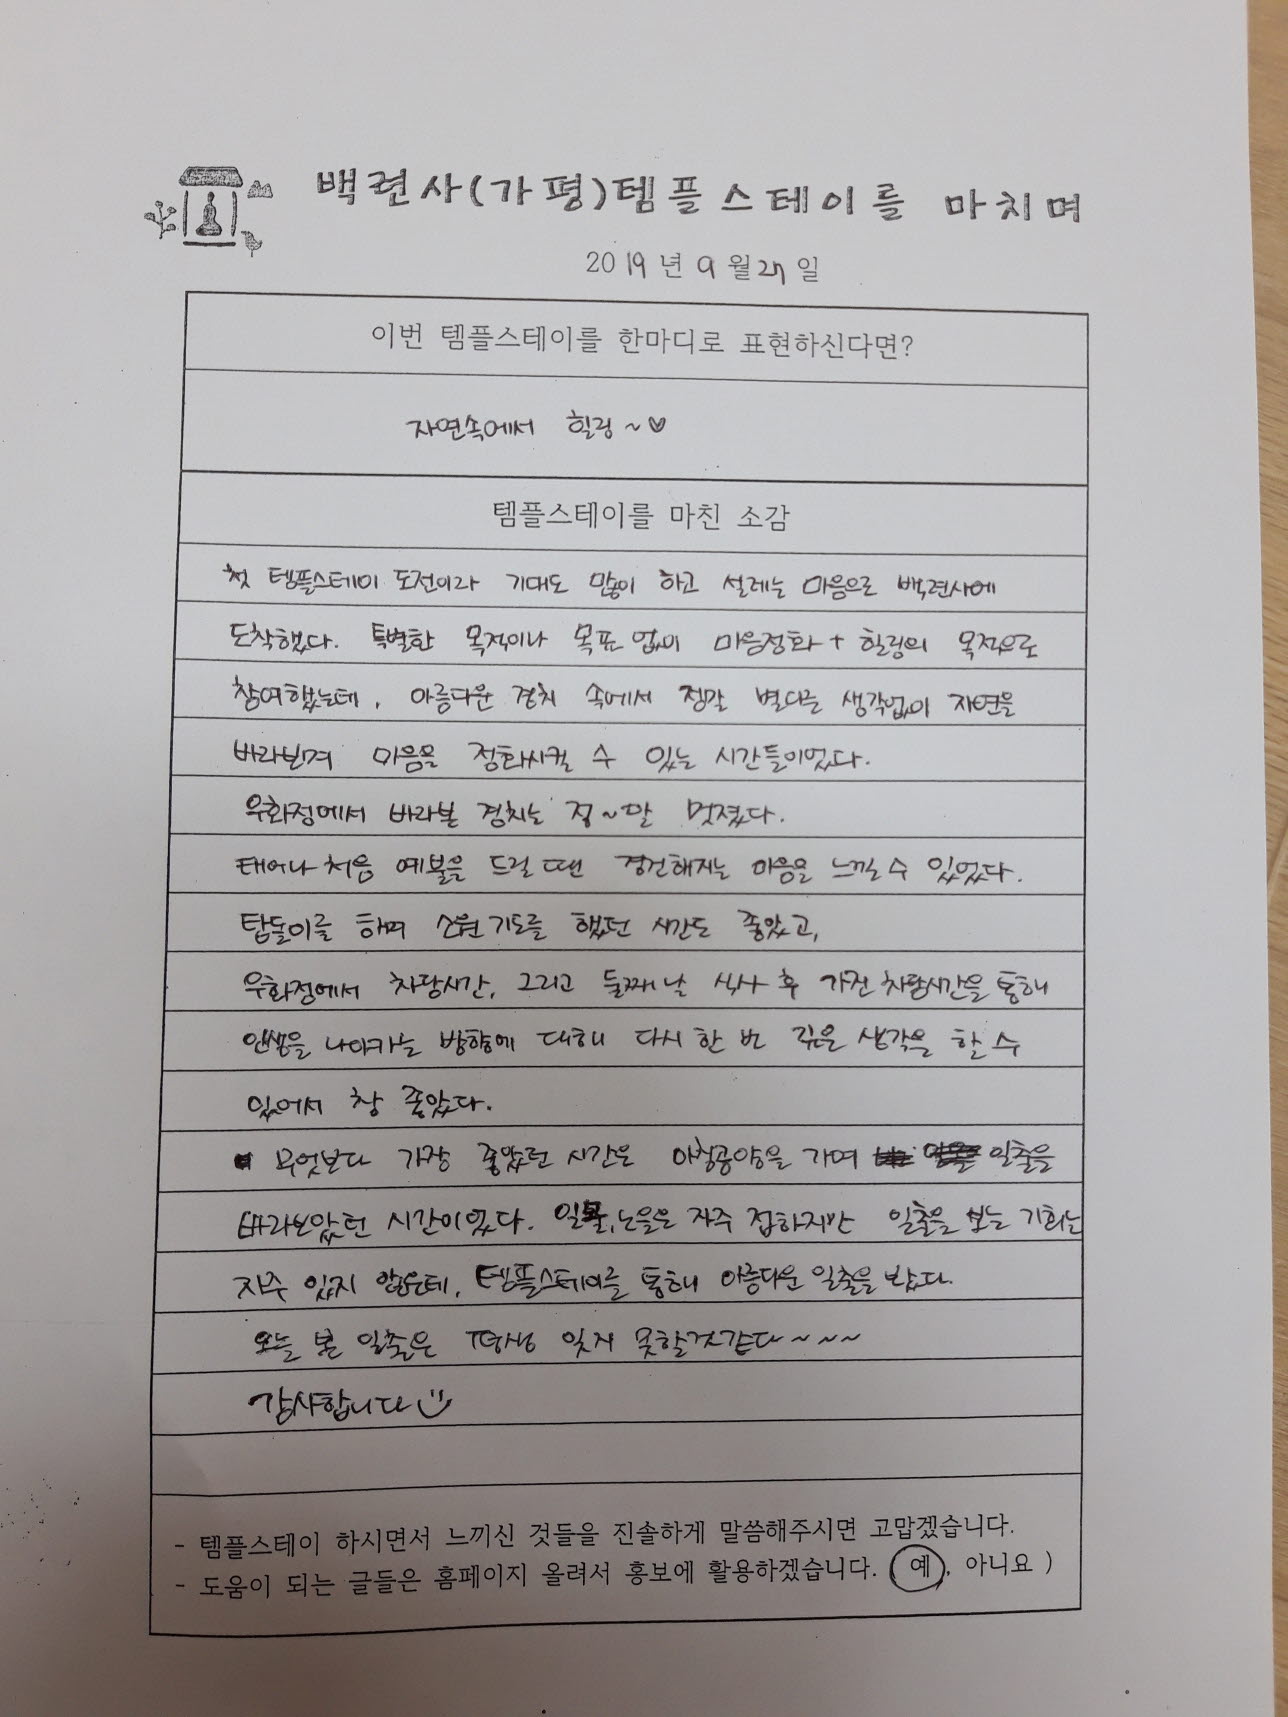 백련사(가평)템플스테이를 마치며
2019년 9월 27일
이번 템플스테이를 한마디로 표현하신다면?
자연속에서 힐링~♡
템플스테이를 마친 소감
첫 템플스테이 도전이라 기대도 많이 하고 설레는 마음으로 백련사에
도착했다. 특별한 목적이나 목표 없이 마음정화 + 힐링의 목적으로
참여했는데, 아름다운 경치 속에서 정말 별다른 생각없이 자연을
바라보며 마음을 정화시킬 수 있는 시간들이었다.
우화정에서 바라본 경치는 정~말 멋졌다.
태어나 처음 예불을 드릴 땐 경건해지는 마음을 느낄 수 있었다.
탑돌이를 하며 소원기도를 했던 시간도 좋았고,
우화정에서 차담시간, 그리고 둘째날 식사 후 가진 차담시간을 통해
인생을 나아가는 방향에 대해 다시 한 번 깊은 생각을 할 수
있어서 참 좋았다.
무엇보다 가장 좋았던 시간은 아침공양을 가며 일출을
바라보았던 시간이었다. 일몰, 노을은 자주 접하지만 일출을 보는 기회는
자주 있지 않은데, 템플스테이를 통해 아름다운 일출을 봤다.
오늘 본 일출은 평생 잊지 못할것같다~~~
감사합니다
- 템플스테이 하시면서 느끼신 것들을 진솔하게 말씀해주시면 고맙겠습니다.
- 도움이 되는 글들은 홈페이지 올려서 홍보에 활용하겠습니다. (예, 아니요)